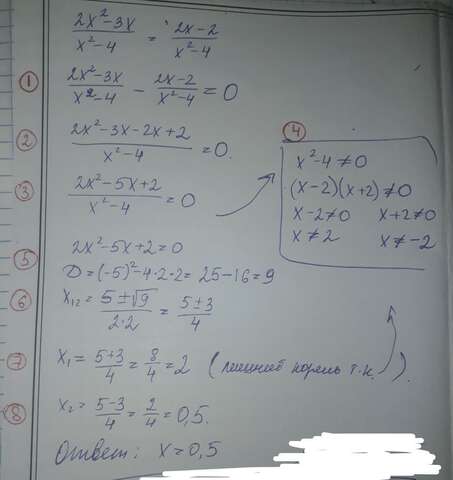 (2x²-3x)/(x²-4) = (2x-2)/(x²-4)
① (2x²-3x)/(x²-4) - (2x-2)/(x²-4) = 0
② (2x²-3x-2x+2)/(x²-4) = 0.
③ (2x²-5x+2)/(x²-4) = 0
④
x²-4≠0
(x-2)(x+2)≠0
x-2≠0 x+2≠0
x≠2 x≠-2
⑤ 2x²-5x+2=0
D=(-5)²-4·2·2=25-16=9
⑥ x₁,₂=(5±√9)/(2·2) = (5±3)/4
⑦ x₁ = (5+3)/4 = 8/4 = 2 (лишний корень т.к. )
⑧ x₂ = (5-3)/4 = 2/4 = 0,5.
Ответ: x=0,5